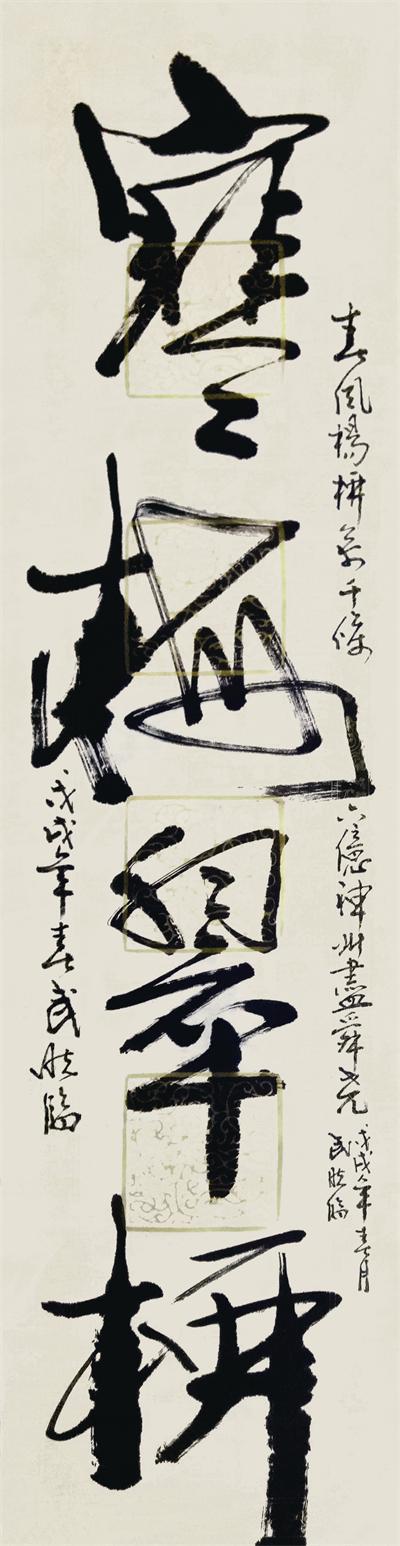 春風楊柳萬千條
六億神州盡舜堯
戊戌年春月
武臨
寒梅翠柳
戊戌年春武臨